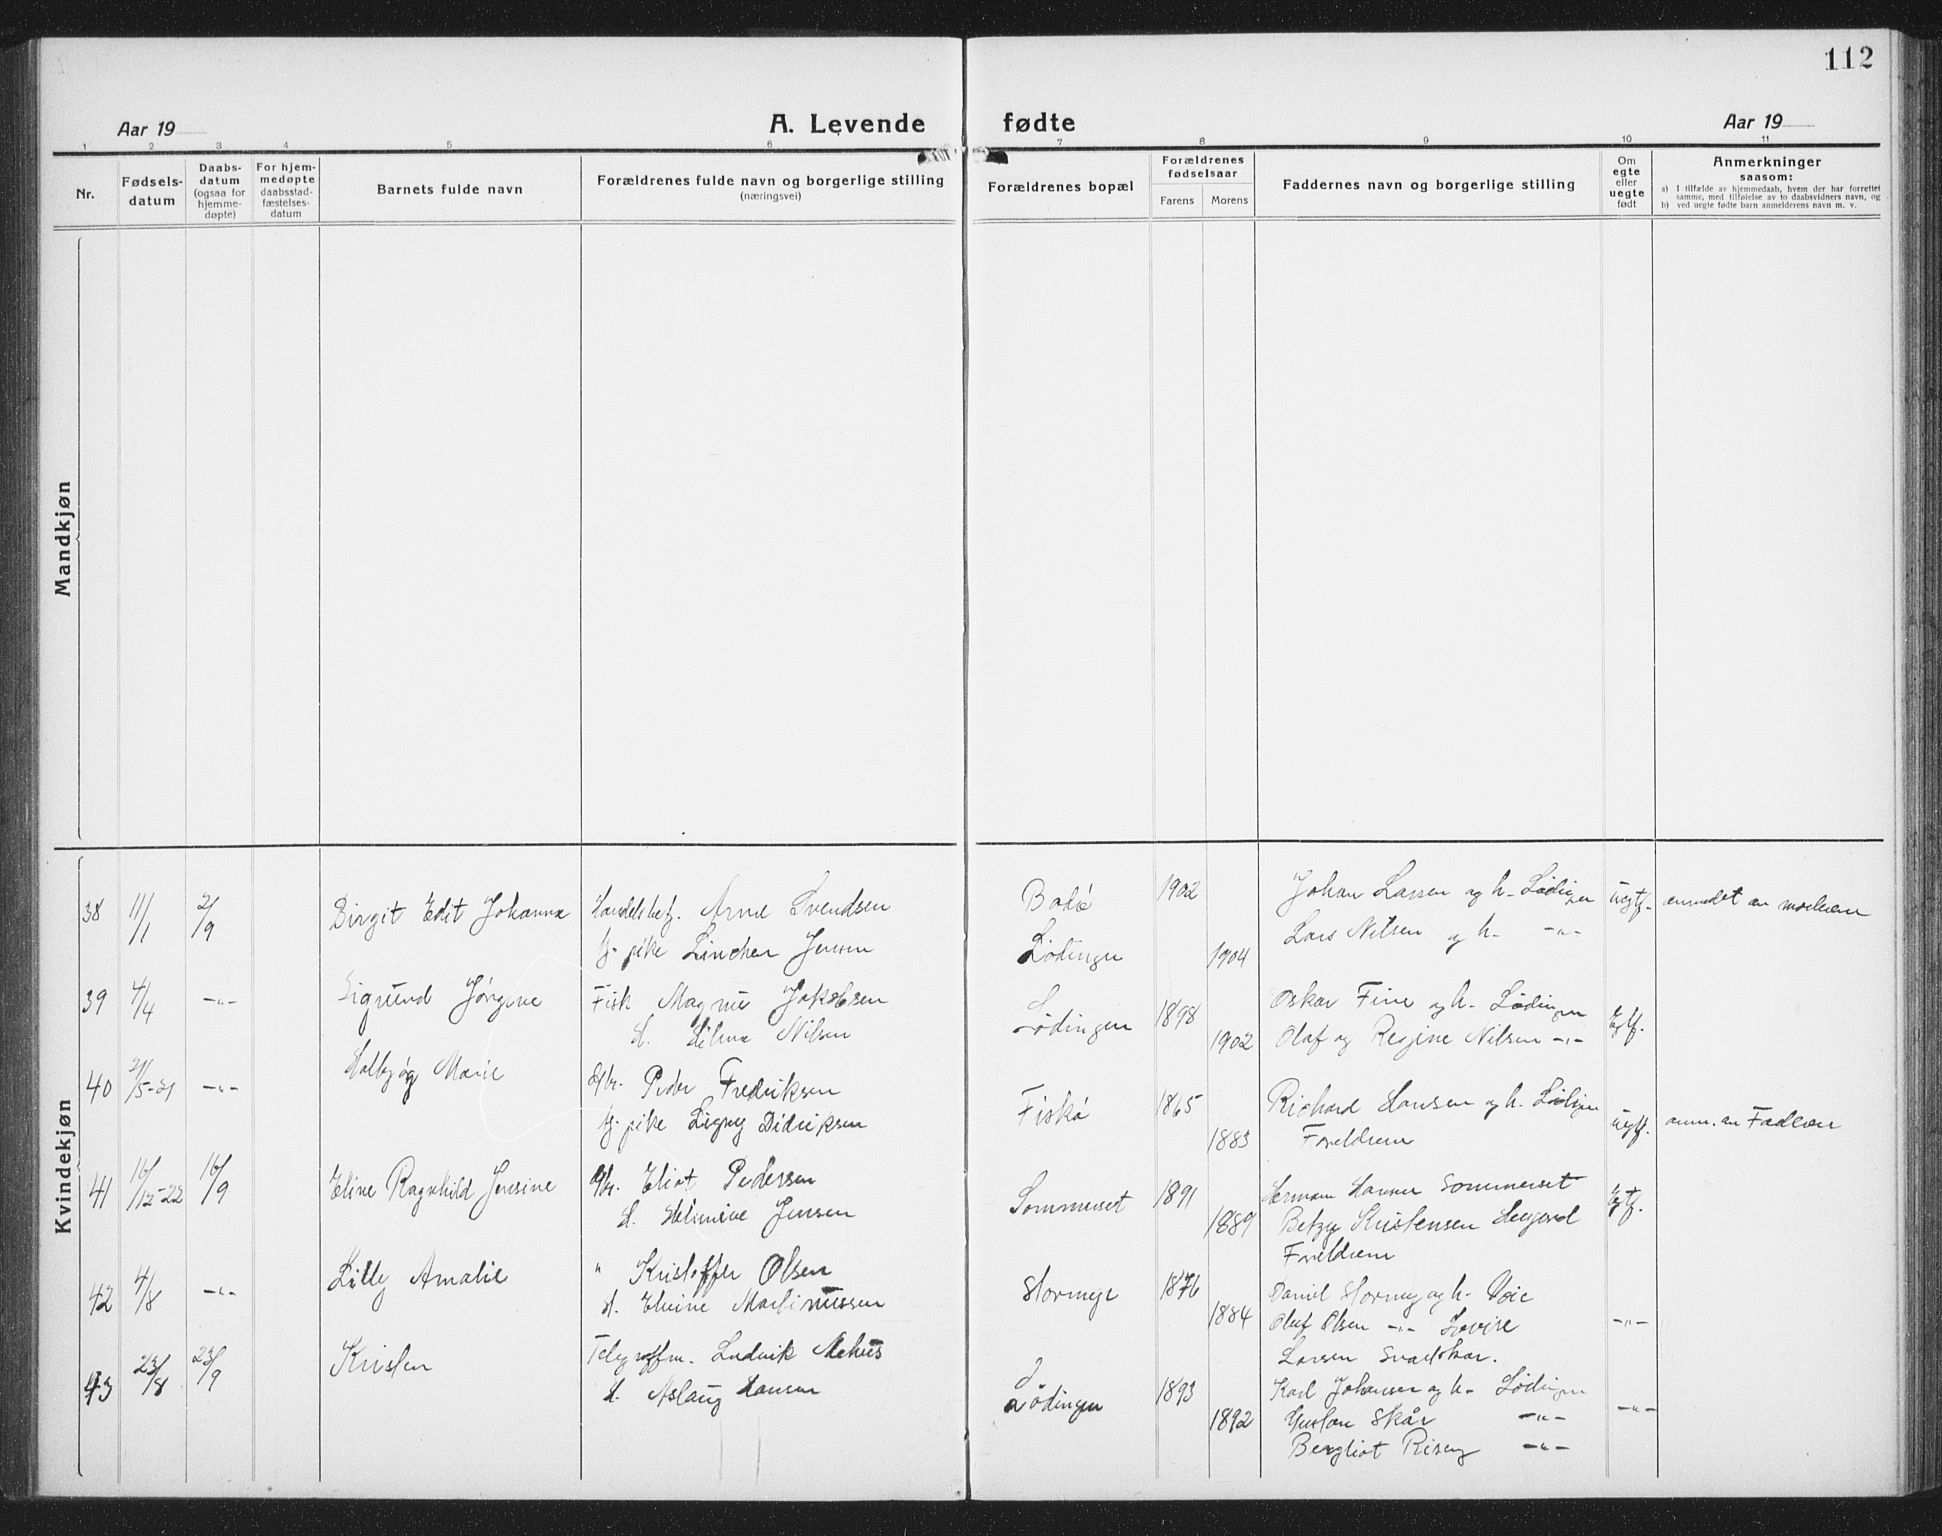 112
Aar 19
A. Levende fødte
Aar 19
1 2 3 4 5 6 7 8 9 10 11
Nr.
Fødsels-
datum
Daabs-
datum
(ogsaa for
hjemme-
døpte)
For hjem-
medøpte
daabsstad-
fæstelses-
datum
Barnets fulde navn
Forældrenes fulde navn og borgerlige stilling
(næringsvei)
Forældrenes bopæl
Forældrenes
fødselsaar
Farens Morens
Faddernes navn og borgerlige stilling
Om
egte
eller
uegte
født
Anmerkninger
saasom:
a) I tilfælde av hjemmedaab, hvem der har forrettet
samme, med tilføielse av to daabsvidners navn, og
b) ved uegte fødte barn anmelderens navn m. v.
Mandkjøn
Kvindekjøn
38 11/1 2/9 Birgit Edit Johanna Handelsbetj. Arne Svendsen Bodø 1902 Johan Larsen og h. Lødingen uegtf. anmeldt av moderen
pike Linchen Jensen Lødingen 1904 Lars Nilsen og h. -"-
39 4/4 -"- Sigrund Jørgine Fisk Magnus Jakobsen Lødingen 1898 Oskar Fine og h. Lødingen Egtf.
H. Hilma Nilsen 1902 Olaf og Regine Nilsen -"-
40 21/5-21 -"- Halbjøg Marie Gbr. Peder Fredriksen Fiskø 1865 Richard Hansen og h. Lødingen uegtf. anm. av Faderen
pike Signy Didriksen 1883 Foreldrene
41 16/12-22 16/9 Eline Ragnhild Jensine Gbr. Eliot Pedersen Sommerset 1891 Herman Hanner Sommerset Egtf.
H. Helmine Jensen 1889 Betzy Kristensen
Foreldrene
42 4/8 -"- Lilly Amalie " Kristoffer Olsen Stormyr 1876 Daniel Stormyr og h. Voie
H. Eline Martinussen 1884 Oluf Olsen -"- Lovise -"-
Larsen Svartskar.
43 23/8 23/9 Kristen Telegrafm. Ludvik Mehus Lødingen 1893 Karl Johansen og h. Lødingen
H. Aslaug Hansen 1892 Gustav Skår -"- -"-
Bergliot Risøy -"-